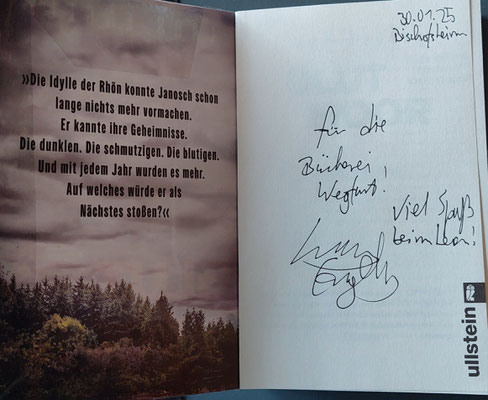 »Die Idylle der Rhön konnte Janosch schon
lange nichts mehr vormachen.
Er kannte ihre Geheimnisse.
Die dunklen. Die schmutzigen. Die blutigen.
Und mit jedem Jahr wurden es mehr.
Auf welches würde er als
Nächstes stoßen?«
30.01.25
Bischofsheim
Für die
Bücherei
Wegfurt!
Viel Spaß
beim Lesen!
ullstein